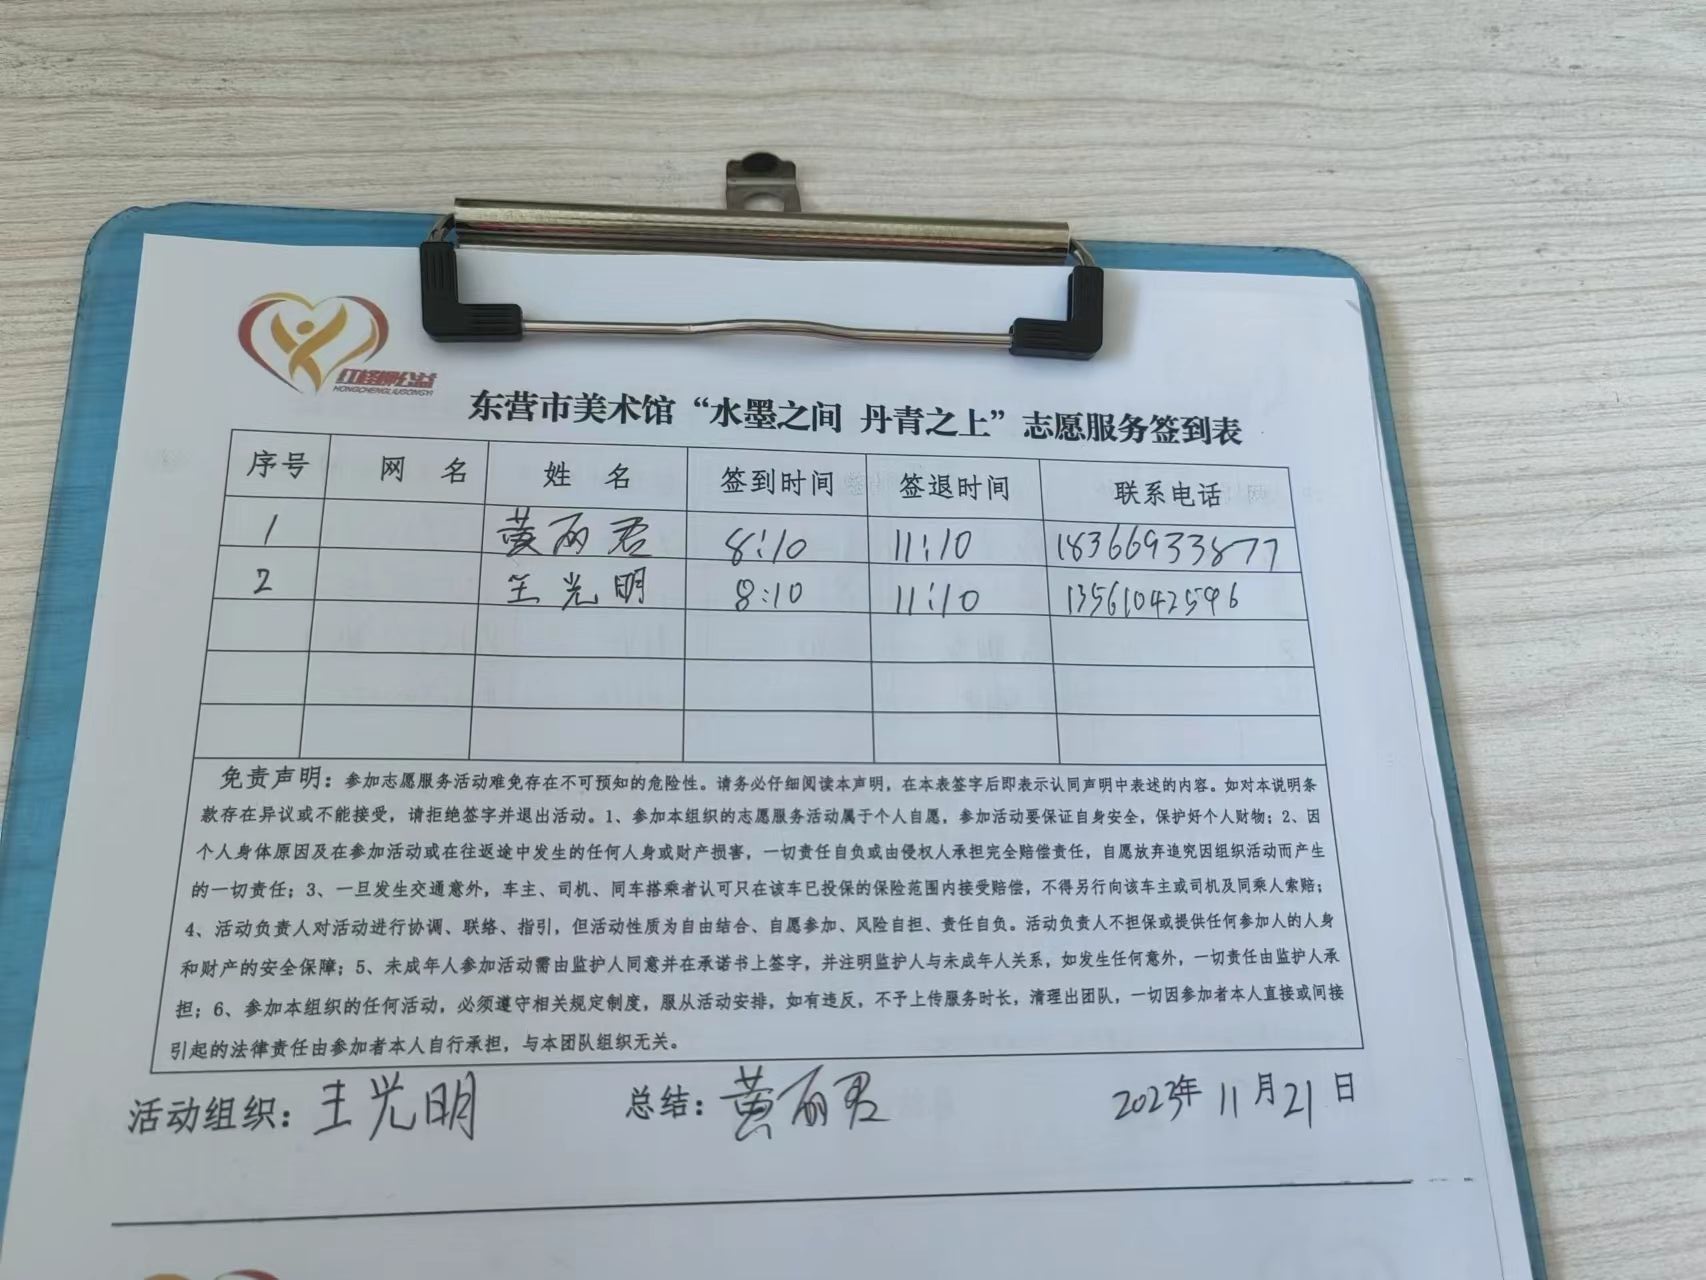 红柽柳公益
HONGCHENGLIUGONGYI
东营市美术馆“水墨之间 丹青之上”志愿服务签到表
序号 网 名 姓 名 签到时间 签退时间 联系电话
1 黄丽君 8:10 11:10 18366933877
2 王光明 8:10 11:10 13561042596
免责声明：参加志愿服务活动难免存在不可预知的危险性。请务必仔细阅读本声明，在本表签字后即表示认同声明中表述的内容。如对本说明条
款存在异议或不能接受，请拒绝签字并退出活动。1、参加本组织的志愿服务活动属于个人自愿，参加活动要保证自身安全，保护好个人财物；2、因
个人身体原因及在参加活动或在往返途中发生的任何人身或财产损害，一切责任自负或由侵权人承担完全赔偿责任，自愿放弃追究因组织活动而产生
的一切责任；3、一旦发生交通意外，车主、司机、同车搭乘者认可只在该车已投保的保险范围内接受赔偿，不得另行向该车主或司机及同乘人索赔；
4、活动负责人对活动进行协调、联络、指引，但活动性质为自由结合、自愿参加、风险自担、责任自负。活动负责人不担保或提供任何参加人的人身
和财产的安全保障；5、未成年人参加活动需由监护人同意并在承诺书上签字，并注明监护人与未成年人关系，如发生任何意外，一切责任由监护人承
担；6、参加本组织的任何活动，必须遵守相关规定制度，服从活动安排，如有违反，不予上传服务时长，清理出团队，一切因参加者本人直接或间接
引起的法律责任由参加者本人自行承担，与本团队组织无关。
活动组织：王光明 总结：黄丽君 2023年 11月21日